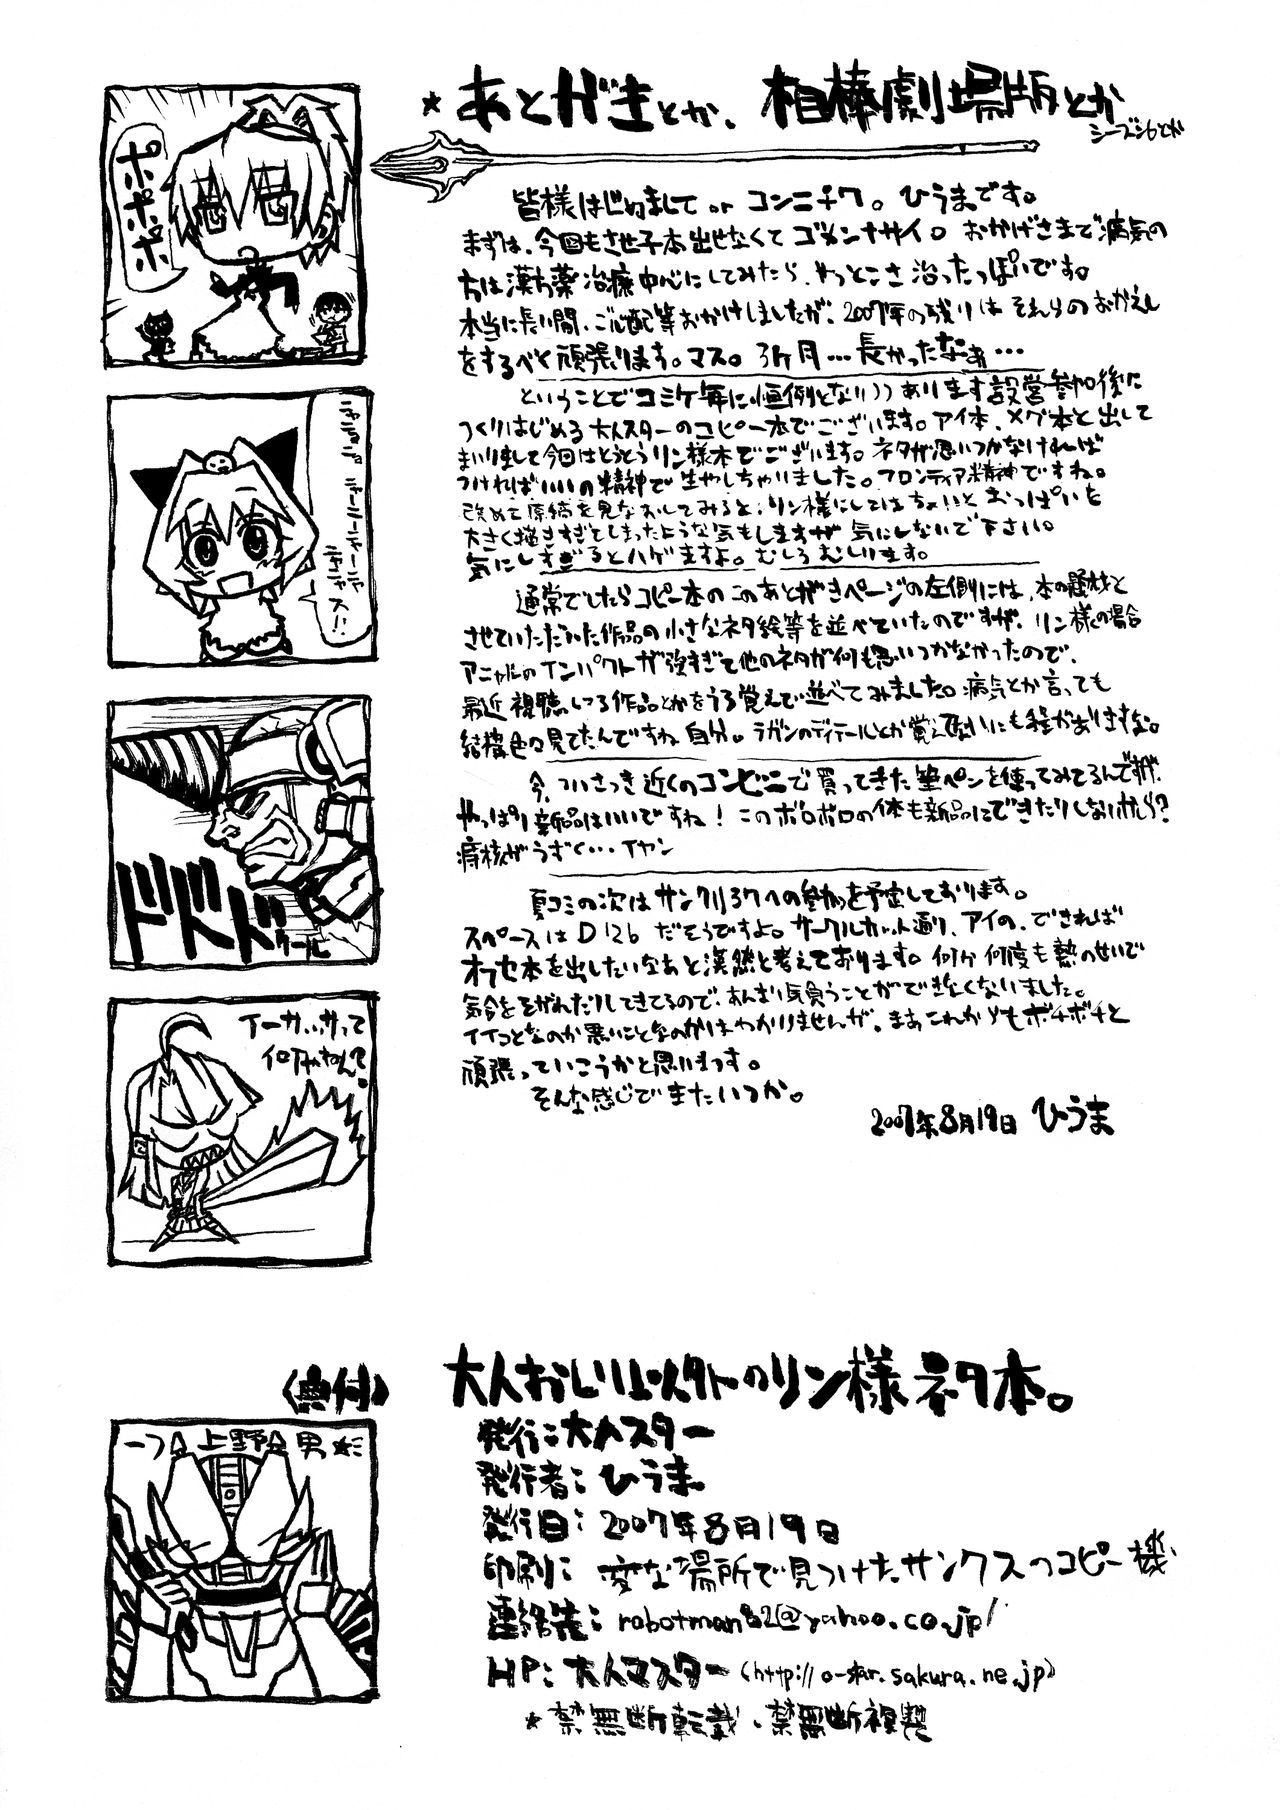 ★あとがきとか、相棒劇場版とか
シーズン6とか
皆様はじめまして or コンニチワ。ひうまです。
まずは、今回もさせ子本出せなくてゴメンナサイ。おかげさまで病気の
方は漢方薬治療中心にしてみたら、やっとこさ治ったっぽいです。
本当に長い間、ご心配等おかけしましたが、2007年の残りはそれらのおかえし
をするべく頑張ります。マス。3ヶ月…長かったなぁ…
ということでコミケ毎に恒例となり
あります設営参加後に
つくりはじめる大人スターのコピー本でございます。アイ本、メグ本と出して
まいりまして今回はとうとうリン様本でございます。ネタが思いつかなければ
つければいいの精神で生やしちゃいました。フロンティア精神ですね。
改めて原稿を見なおしてみると、リン様にしてはちょいとおっぱいを
大きく描きすぎてしまったような気もしますが気にしないで下さい。
気にしすぎるとハゲますよ。むしろむしります。
通常でしたらコピー本のこのあとがきページの左側には、本の題材と
させていただいた作品の小さなネタ絵等を並べていたのですが、リン様の場合
アニャルのインパクトが強すぎて他のネタが何も思いつかなかったので、
最近視聴してる作品とかをうろ覚えで並べてみました。病気とか言っても
結構色々見てたんですね自分。ラガンのディテールとか覚え
ないにも程がありますな。
今、ついさっき近くのコンビニで買ってきた筆ペンを使ってみてるんですが、
やっぱり新品はいいですね！このボロボロの体も新品にできたりしないかしら？
痔核がうずく…イヤン
夏コミの次はサンクリ37への参加を予定しております。
スペースはD12bだそうですよ。サークルカット通り、アイの、できれば
オフセ本を出したいなあと漠然と考えております。何分何度も熱のせいで
気合をそがれたりしてきてるので、あんまり気負うことができなくなりました。
イイコとなのか悪いことなのかはわかりませんが、まあこれからもボチボチと
頑張っていこうかと思います。
そんな感じでまたいつか。
2007年8月19日 ひうま
ポポポポ
ドドド
クール
イーガ
ッサって
何やねん？
〈奥付〉
上野
男★
大人おしり以外のリン様ネタ本。
発行：大人スター
発行者：ひうま
発行日：2007年8月19日
印刷：変な場所で見つけたサンクスのコピー機
連絡先：robotman82@yahoo.co.jp
HP：大人マスター（http://o-star.sakura.ne.jp）
★禁無断転載、禁無断複製